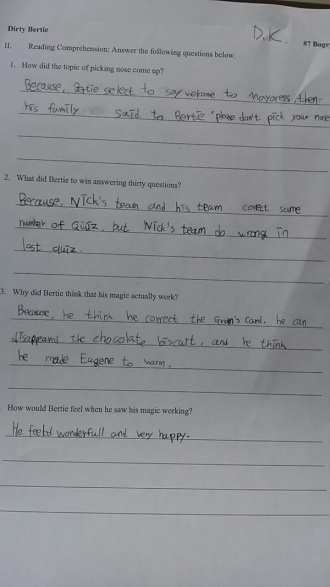 Dirty Bertie
D.K.
#7 Boge
II. Reading Comprehension: Answer the following questions below.
1. How did the topic of picking nose come up?
Because, Bertie select to say to Mayoress, then
his family said to Bertie "please don't pick your nose
2. What did Bertie to win answering thirty questions?
Because, Nick's team and his team corect same
number of Quiz, but Nick's team do wrong in
last quiz.
3. Why did Bertie think that his magic actually work?
Because, he think he correct the Gran's card. he can
disappears the chocolate biscuit, and he think
he made Eugene to warm.
. How would Bertie feel when he saw his magic working?
He wonderfull and very happy.